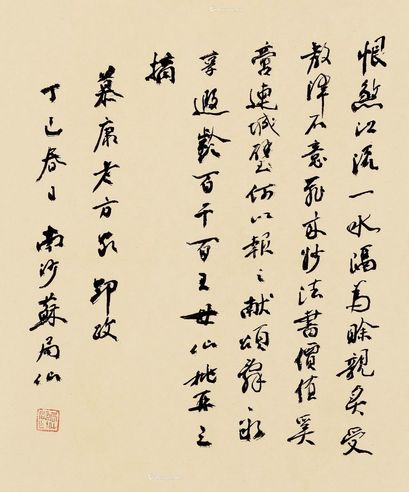 恨煞江流一水隔為賒親炙受
教澤不意飛來妙法書價值奚
啻連城璧何以報之獻頌辭永
享遐齡百千百王母仙桃再三
摘
慕康老方家 郢政
丁巳春日 南沙蘇局仙